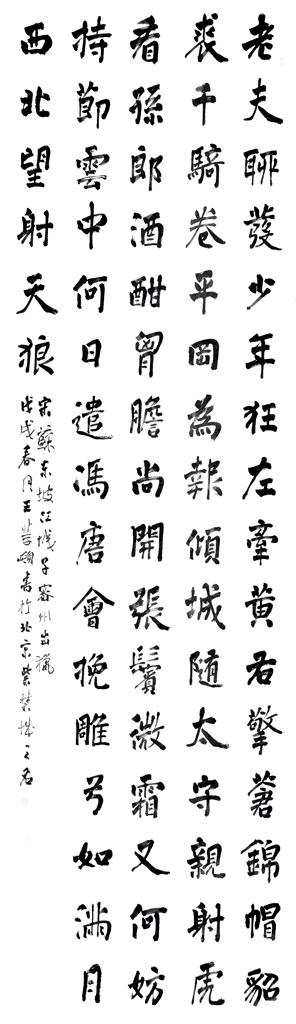 老夫聊發少年狂左牽黃右擎蒼錦帽貂
裘千騎卷平岡為報傾城隨太守親射虎
看孫郎酒酣胷膽尚開張鬢微霜又何妨
持節雲中何日遣馮唐會挽雕弓如滿月
西北望射天狼
宋蘇東坡江城子密州出獵
戊戌春月王書於北京紫禁城之右